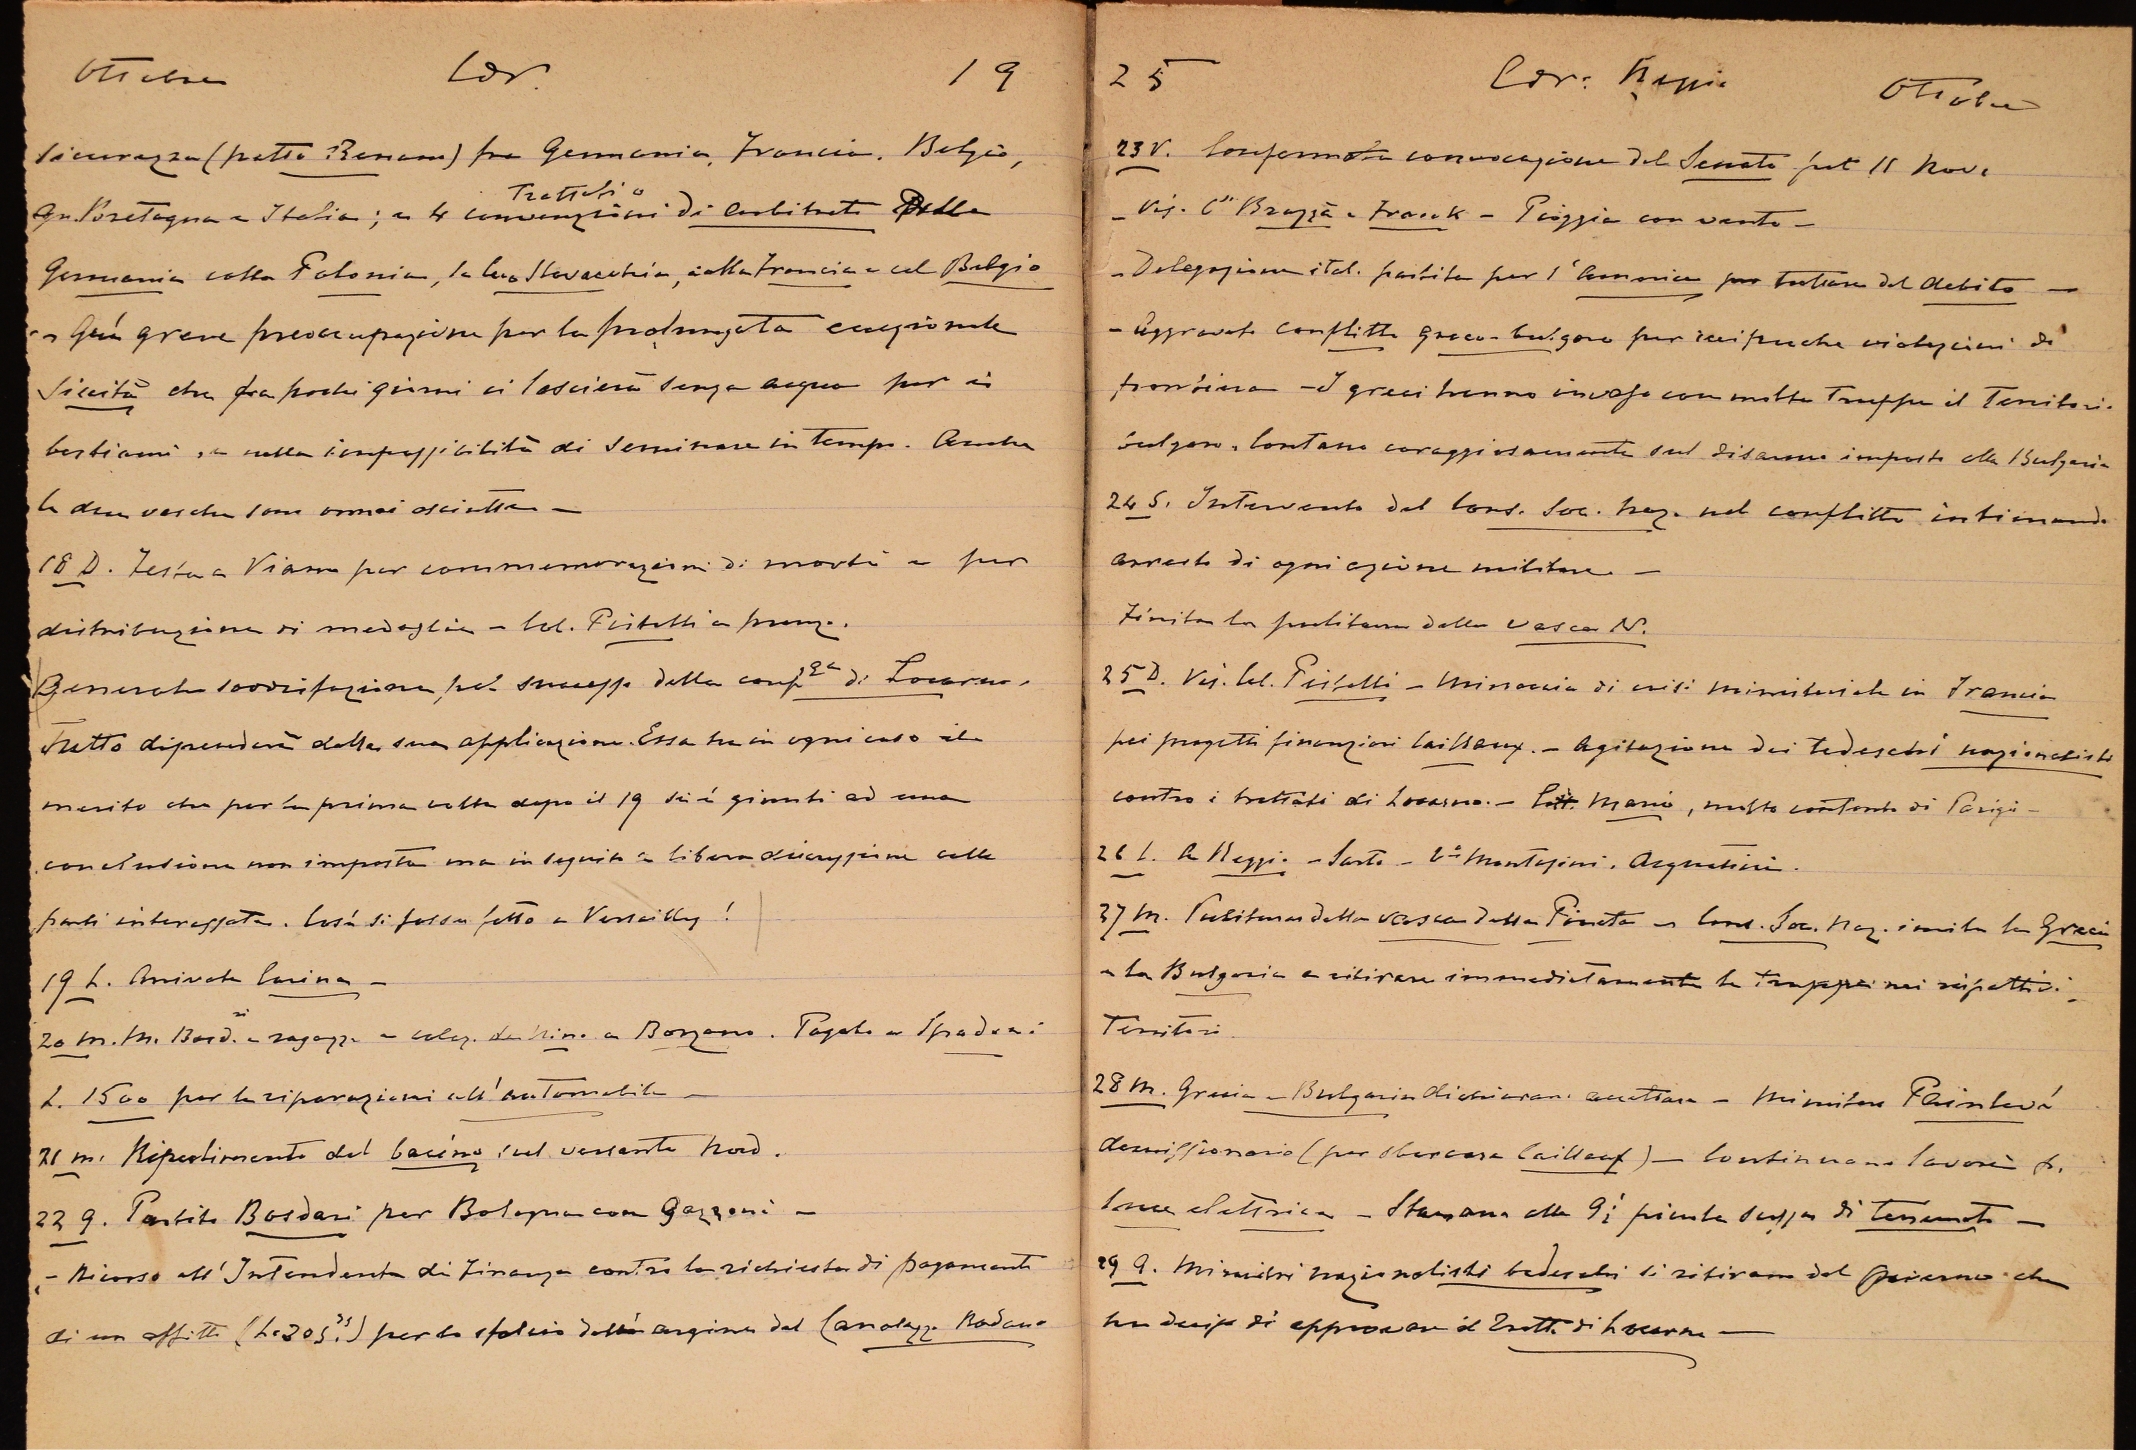 Ottobre Cor. 19
sicurezza (patto Renano) fra Germania, Francia, Belgio,
Gr. Bretagna e Italia; e 4 convenzioni Trattati di arbitrato della
Germania colla Polonia, la Ceco Slovacchia, colla Francia e col Belgio
- Più grave preoccupazione per la prolungata eccezionale
siccità che fra pochi giorni ci lascierà senza acqua per il
bestiame, e nella impossibilità di seminare in tempo. Anche
le due vasche sono ormai asciutte -
18 D. Festa a Viano per commemorazione di morti e per
distribuzione di medaglie - Col. Pistelli a pranzo.
Generale soddisfazione pel successo della conf.za di Locarno.
Tutto dipenderà dalla sua applicazione. Essa ha in ogni caso il
merito che per la prima volta dopo il 19 si è giunti ad una
conclusione non imposta ma in seguito a libera discussione colle
parti interessate. Così si fosse fatto a Versailles!
19 L. Arrivata Carina -
20 M. M. e ragazze a Borzano. Pagato a Spadoni
L. 1500 per le riparazioni all'automobile -
21 m. Ripulimento del bacino sul versante Nord.
22 g. Partito Bosdari per Bologna con Gazzoni -
- Ricorso all'Intendente di Finanza contro la richiesta di pagamento
di un affitto (L. 205) per lo sfalcio dell'argine del Canalazzo
25 Cor: Reggio Ottobre
23 V. Confermata convocazione del Senato pel 11 Nov.
- Vis. Brazzà e Franck - Pioggia con vento -
- Delegazione ital. partita per l'America per trattare del debito -
- Aggravato conflitto greco-bulgaro per reciproche violazioni di
frontiera - I greci hanno invaso con molte truppe il territorio
bulgaro. Contano coraggiosamente sul disarmo imposto alla Bulgaria
24 S. Intervento del Cons. Soc. Naz. nel conflitto intimando
arresto di ogni azione militare. -
Finita la pulitura della vasca N.
25 D. Vis. Col. Pistelli - Minaccia di crisi ministeriale in Francia
pei progetti finanziari Caillaux. - Agitazione dei tedeschi nazionalisti
contro i trattati di Locarno. - Mario, molto contento di Parigi -
26 L. A Reggio - Sarto - Acquetini.
27 M. Pulitura della vasca della Pineta - Cons. Soc. Naz. invita la Grecia
e la Bulgaria a ritirare immediatamente le truppe nei rispettivi
Territori
28 M. Grecia e Bulgaria dichiarano accettare - Ministero Painlevé
demissionario (per sbarcare Caillaux) - Continuano lavori p.
luce elettrica - Stamane alle 9½ piccola scossa di terremoto -
29 G. Ministri nazionalisti tedeschi si ritirano dal governo che
ha deciso di approvare il Tratt. di Locarno -